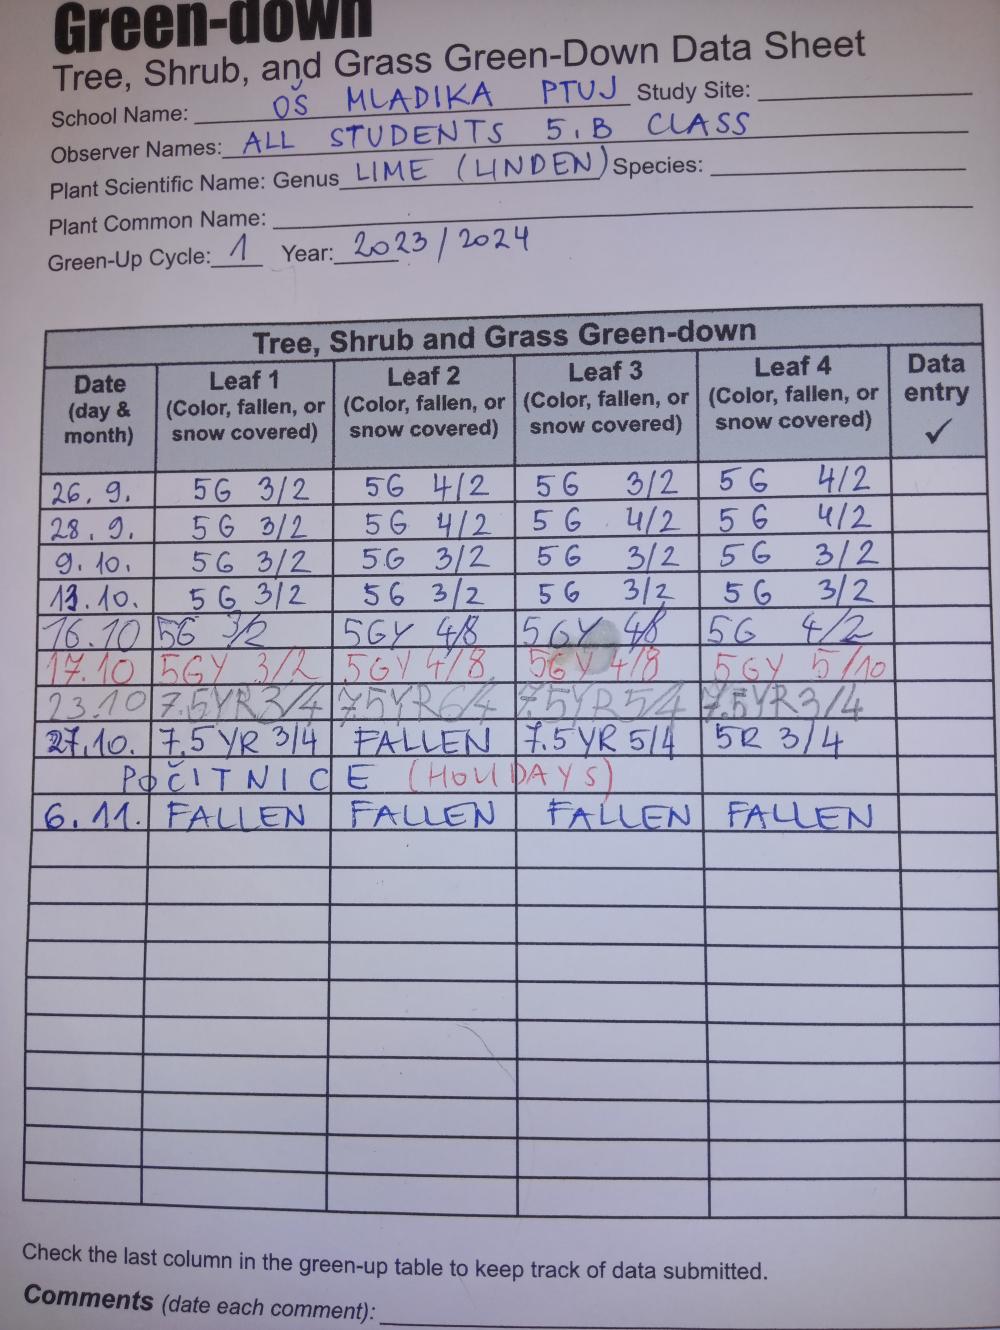 Green-down
Tree, Shrub, and Grass Green-Down Data Sheet
School Name: OŠ MLADIKA PTUJ Study Site:
Observer Names: ALL STUDENTS 5.B CLASS
Plant Scientific Name: Genus LIME (LINDEN) Species:
Plant Common Name:
Green-Up Cycle: 1 Year: 2023/2024
Tree, Shrub and Grass Green-down
Date (day & month) Leaf 1 (Color, fallen, or snow covered) Leaf 2 (Color, fallen, or snow covered) Leaf 3 (Color, fallen, or snow covered) Leaf 4 (Color, fallen, or snow covered) Data entry ✓
26. 9. 5G 3/2 5G 4/2 5G 3/2 5G 4/2
28. 9. 5G 3/2 5G 4/2 5G 4/2 5G 4/2
9. 10. 5G 3/2 5G 3/2 5G 3/2 5G 3/2
13. 10. 5G 3/2 5G 3/2 5G 3/2 5G 3/2
16.10 5G 3/2 5GY 4/8 5GY 4/8 5G 4/2
17.10 5GY 3/2 5GY 4/8 5GY 4/8 5GY 5/10
23.10 7.5YR3/4 7.5YR6/4 7.5YR5/4 7.5YR3/4
27.10. 7.5 YR 3/4 FALLEN 7.5 YR 5/4 5R 3/4
POČITNICE (HOLIDAYS)
6. 11. FALLEN FALLEN FALLEN FALLEN
Check the last column in the green-up table to keep track of data submitted.
Comments (date each comment):